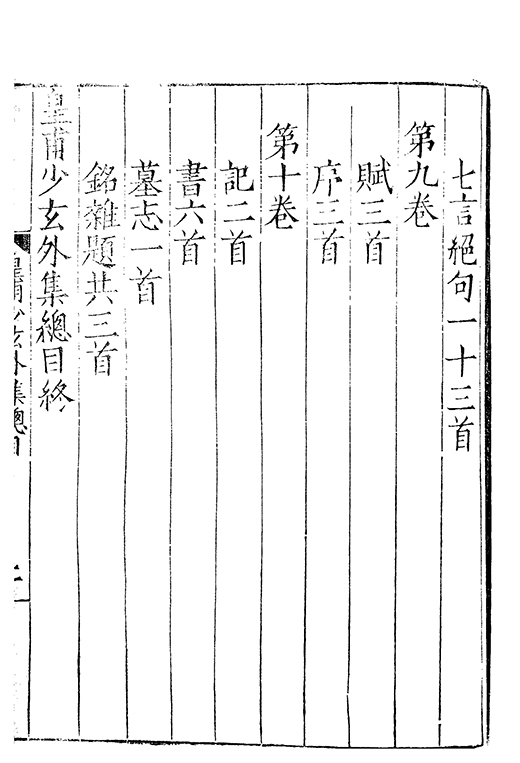 七言絕句一十三首
第九卷
賦三首
序三首
第十卷
記二首
書六首
墓志一首
銘雜題共三首
皇甫少玄外集總目終
皇甫少玄外集總目